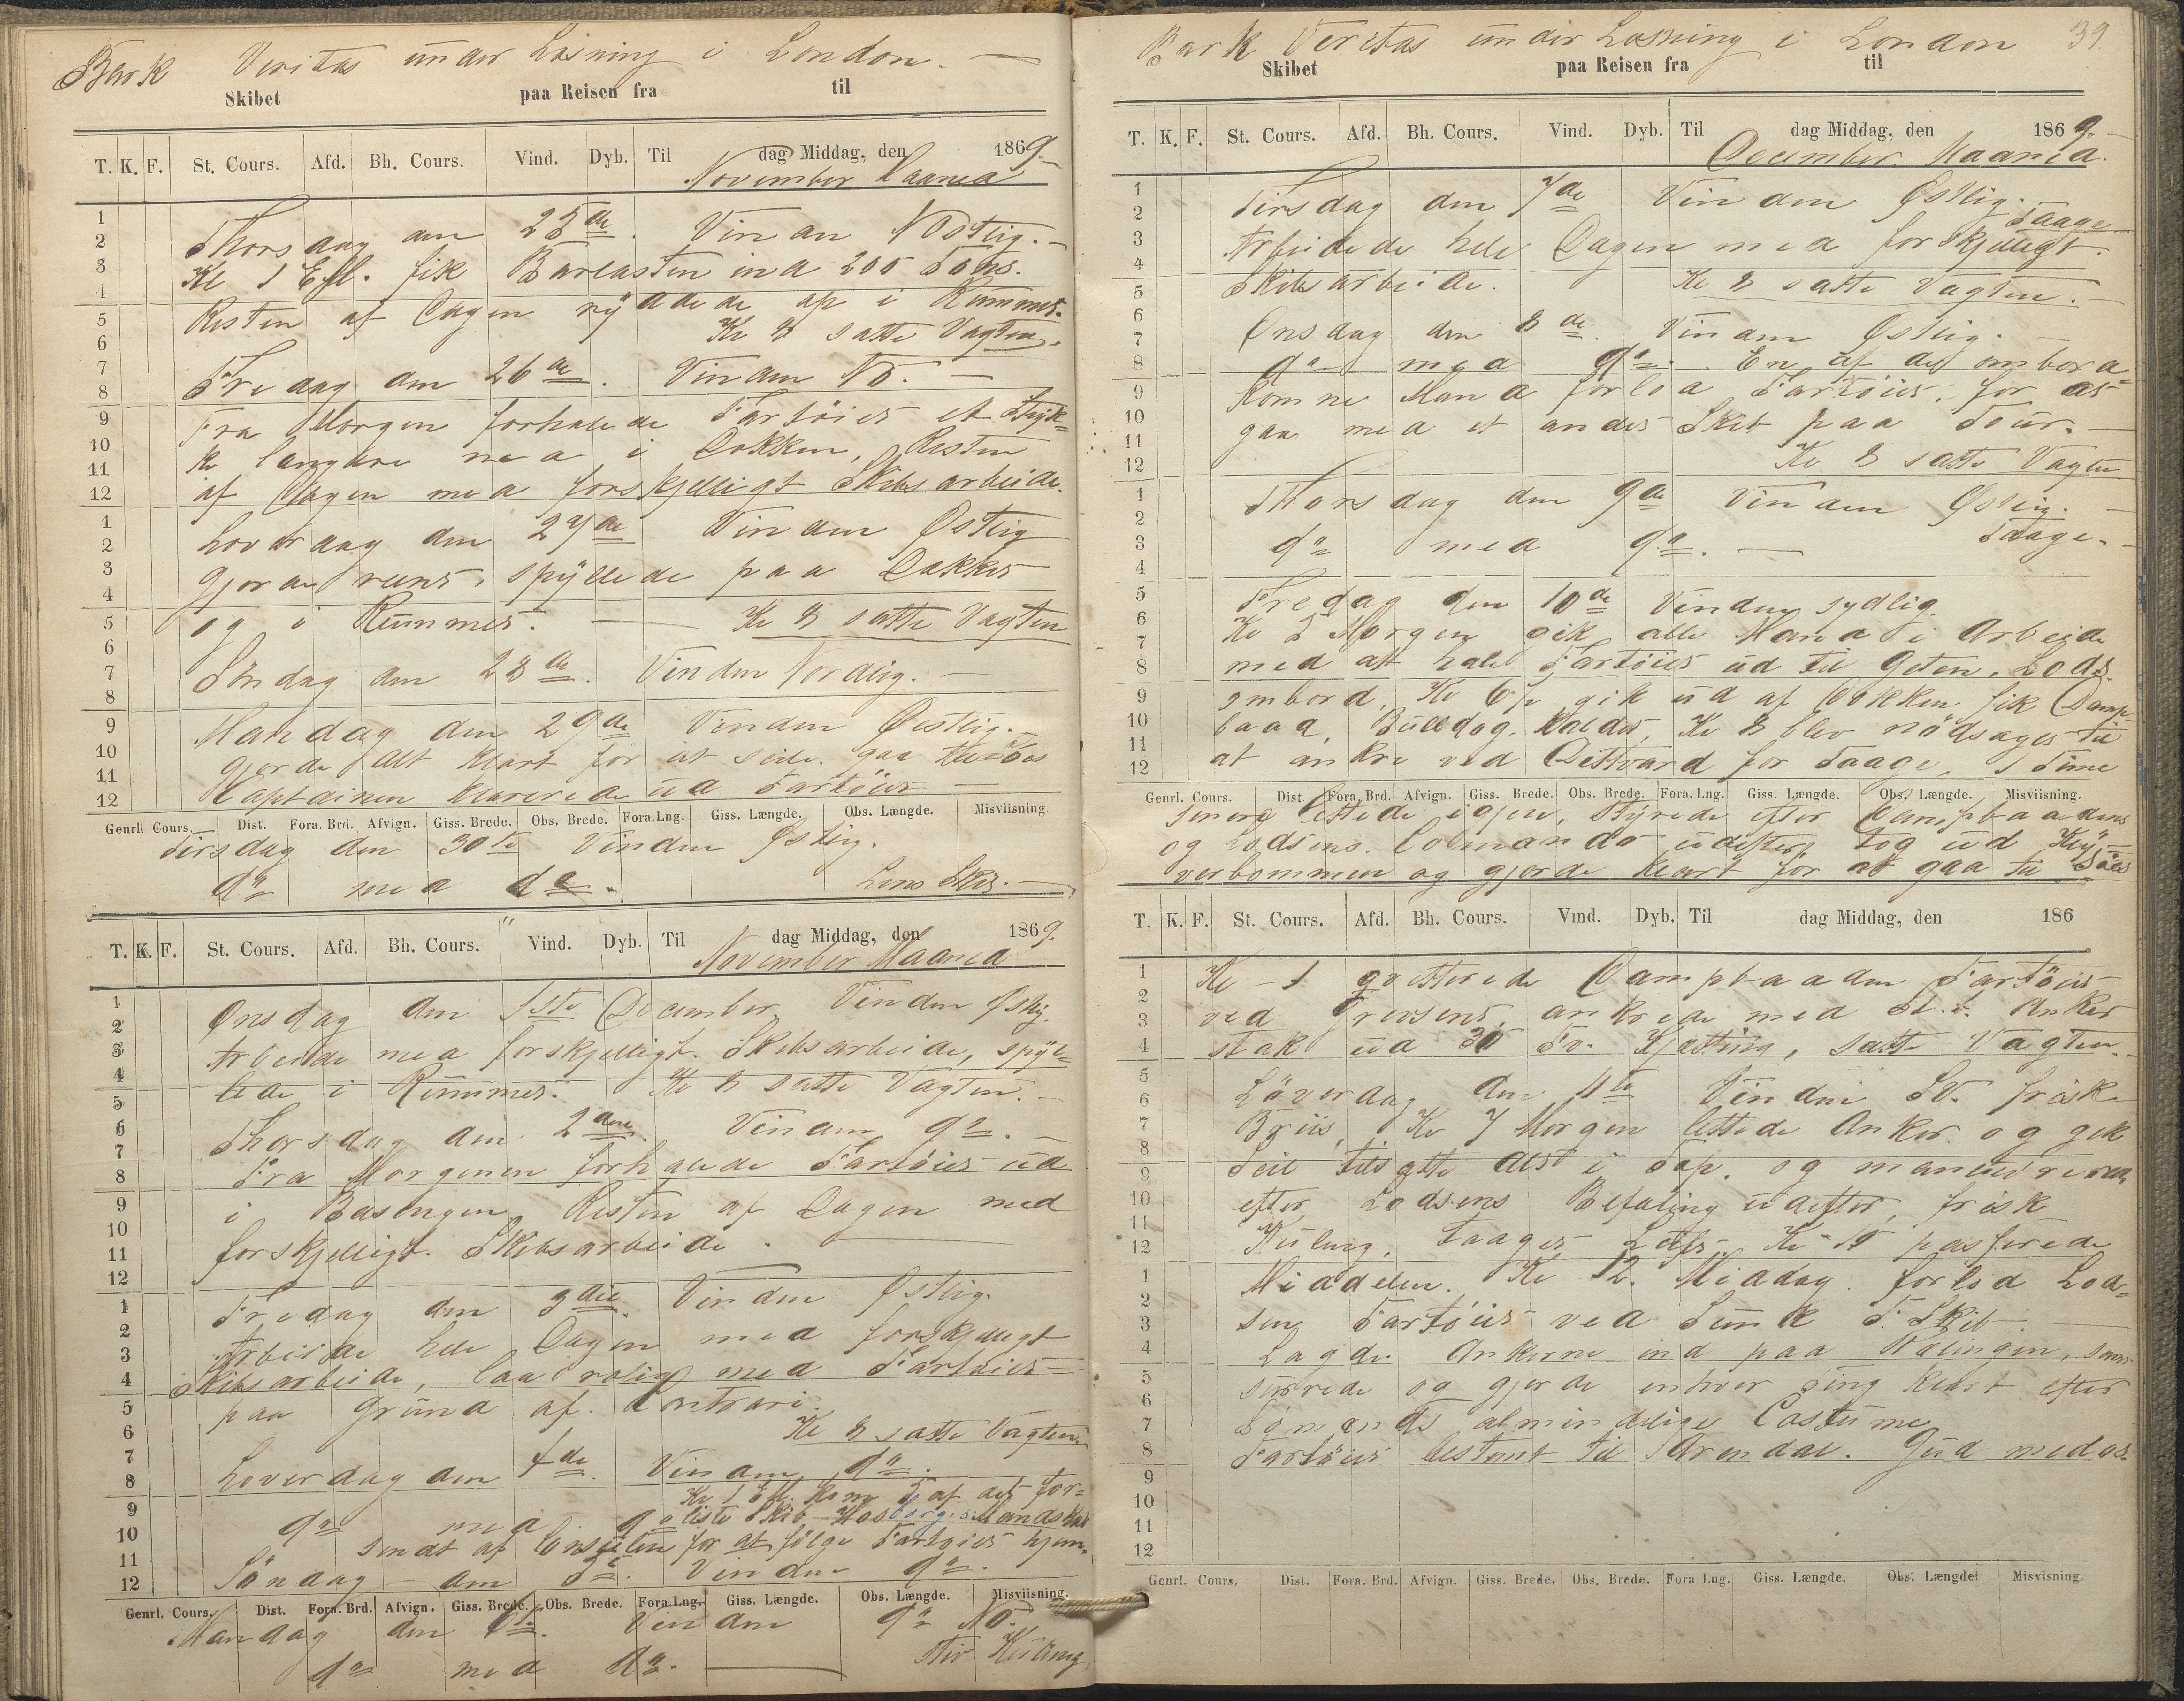 Bark Veritas under Losning i London. —
Skibet paa Reisen fra til
T. K. F. St. Cours. Afd. Bh. Cours. Vind. Dyb. Til dag Middag, den 1869. —
November Maaned
1
2
3
4
5
6
7
8
9
10
11
12
1
2
3
4
5
6
7
8
9
10
11
12
Thorsdag den 25de. Vinden NOstlig. —
Kl 1 Eft. fik Barlasten ind 200 Tons.
Resten af Dagen ryddede op i Rummet.
Kl 8 satte Vagten.
Fredag den 26de. Vinden NO. —
Fra Morgen forhalede Fartöiet et Styk=
ke længere ned i Dokken, Resten
af Dagen med forskjelligt Skibsarbeide.
Loverdag den 27de Vinden Østlig
Gjorde reent, spyllede paa Dækket
og i Rummet. — Kl 8 satte Vagten
Söndag den 28de. Vinden Nordlig. —
Mandag den 29de Vinden Oestlig.
gjorde Alt klart for at seile. gaa tilsöes
Captainen klarerede ud Fartöiet —
Genrl. Cours. Dist. Fora. Brd. Afvign. Giss. Brede. Obs. Brede. Fora.Lng. Giss. Længde. Obs. Længde. Misviisning.
Tirsdag den 30te Vinden Østlig.
do med do. Lens Skib. —
T. K. F. St. Cours. Afd. Bh. Cours. Vind. Dyb. Til dag Middag, den 1869.
November Maaned
1
2
3
4
5
6
7
8
9
10
11
12
1
2
3
4
5
6
7
8
9
10
11
12
Onsdag den 1ste December. Vinden Østlig.
Arbeide med forskjelligt Skibsarbeide, spyl=
lede i Rummet. Kl 8 satte Vagten. —
Thorsdag den 2den. Vinden do. —
Fra Morgenen forhalede Fartöiet ud
i Basengen, Resten af Dagen med
forskjelligt Skibsarbeide.
Fredag den 3die. Vinden Østlig.
Arbeide hele Dagen med forskjelligt
Skibsarbeide, laa rolig med Fartöiet
paa Grund af Contrari.
Kl 8 satte Vagten
Loverdag den 4de. Vinden do.
Kl 1 Eft. kom 5 af det for=
do med do liste Skib Mandskab
sendt af Consulen for at fölge Fartöiet hjem.
Söndag den 5te. Vinden do.
Genrl. Cours. Dist. Fora. Brd. Afvign. Giss. Brede. Obs. Brede. Fora.Lng. Giss. Længde. Obs. Længde. Misviisning.
Mandag den 6te. Vinden do NO.
do med do. — stiv Kuling
Bark Veritas under Losning i London 39.
Skibet paa Reisen fra til
T. K. F. St. Cours. Afd. Bh. Cours. Vind. Dyb. Til dag Middag, den 1869. —
December. Maaned.
1
2
3
4
5
6
7
8
9
10
11
12
1
2
3
4
5
6
7
8
9
10
11
12
Tirsdag den 7de Vinden Østlig. Taage
Arbeidede hele Dagen med forskjelligt.
Skibsarbeide. Kl 8 satte Vagten. —
Onsdag den 8de. Vinden Østlig. —
do med do. En af de ombord=
komne Mand forlod Fartöiet, for at
gaa med et andet Skib paa Tour. —
Kl 8 satte Vagten
Thorsdag den 9de Vinden Østlig. —
do med do. — Taage. —
Fredag den 10de Vinden sydlig.
Kl 5 Morgen gik alle Mand i Arbeide
med at hale Fartöiet ud til Geten. Lods
ombord, Kl 6½ gik ud af Dokken fik Damp=
baad, Bulldog, kaldet, Kl 8 blev nödsaget til
at ankre ved for Taage, 1 Time
Genrl. Cours. Dist Fora. Brd. Afvign. Giss. Brede. Obs. Brede. Fora. Lng. Giss. Længde. Obs. Længde. Misviisning.
senere lettede igjen, styrede efter Dampbaadens
og Lodsens Comando udefter, tog ud Kly=
verbommen og gjorde klart for at gaa til Söes
T. K. F. St. Cours. Afd. Bh. Cours. Vind. Dyb. Til dag Middag, den 186
1
2
3
4
5
6
7
8
9
10
11
12
1
2
3
4
5
6
7
8
9
10
11
12
Kl - 1 Dampbaaden Fartöiet
ved ankrede med St. B. Anker
stak ud 30 Fv. Kjætting, satte Vagten. —
Löverdag den 11te Vinden SV. frisk
Briis, Kl 7 Morgen lettede Anker og gik
Seil tilsatte alt i Top. og manøvrerede
efter Lodsens Befaling udefter, frisk
Kuling, Taaget Luft Kl 10 passerede
Middelen. Kl 12. Middag. forlod Lod=
sen Fartöiet ved Sunk F. Skib. —
Lagde Ankerne ind paa Rælingen,
surrede og gjorde enhver Ting klart efter
Sömands almindelige Costume
Fartöiet bestemt til Arendal. Gud med os.
Genrl. Cours. Dist. Fora. Brd. Afvign. Giss. Brede. Obs. Brede. Fora. Lng. Giss. Længde. Obs. Længde Misvisning.